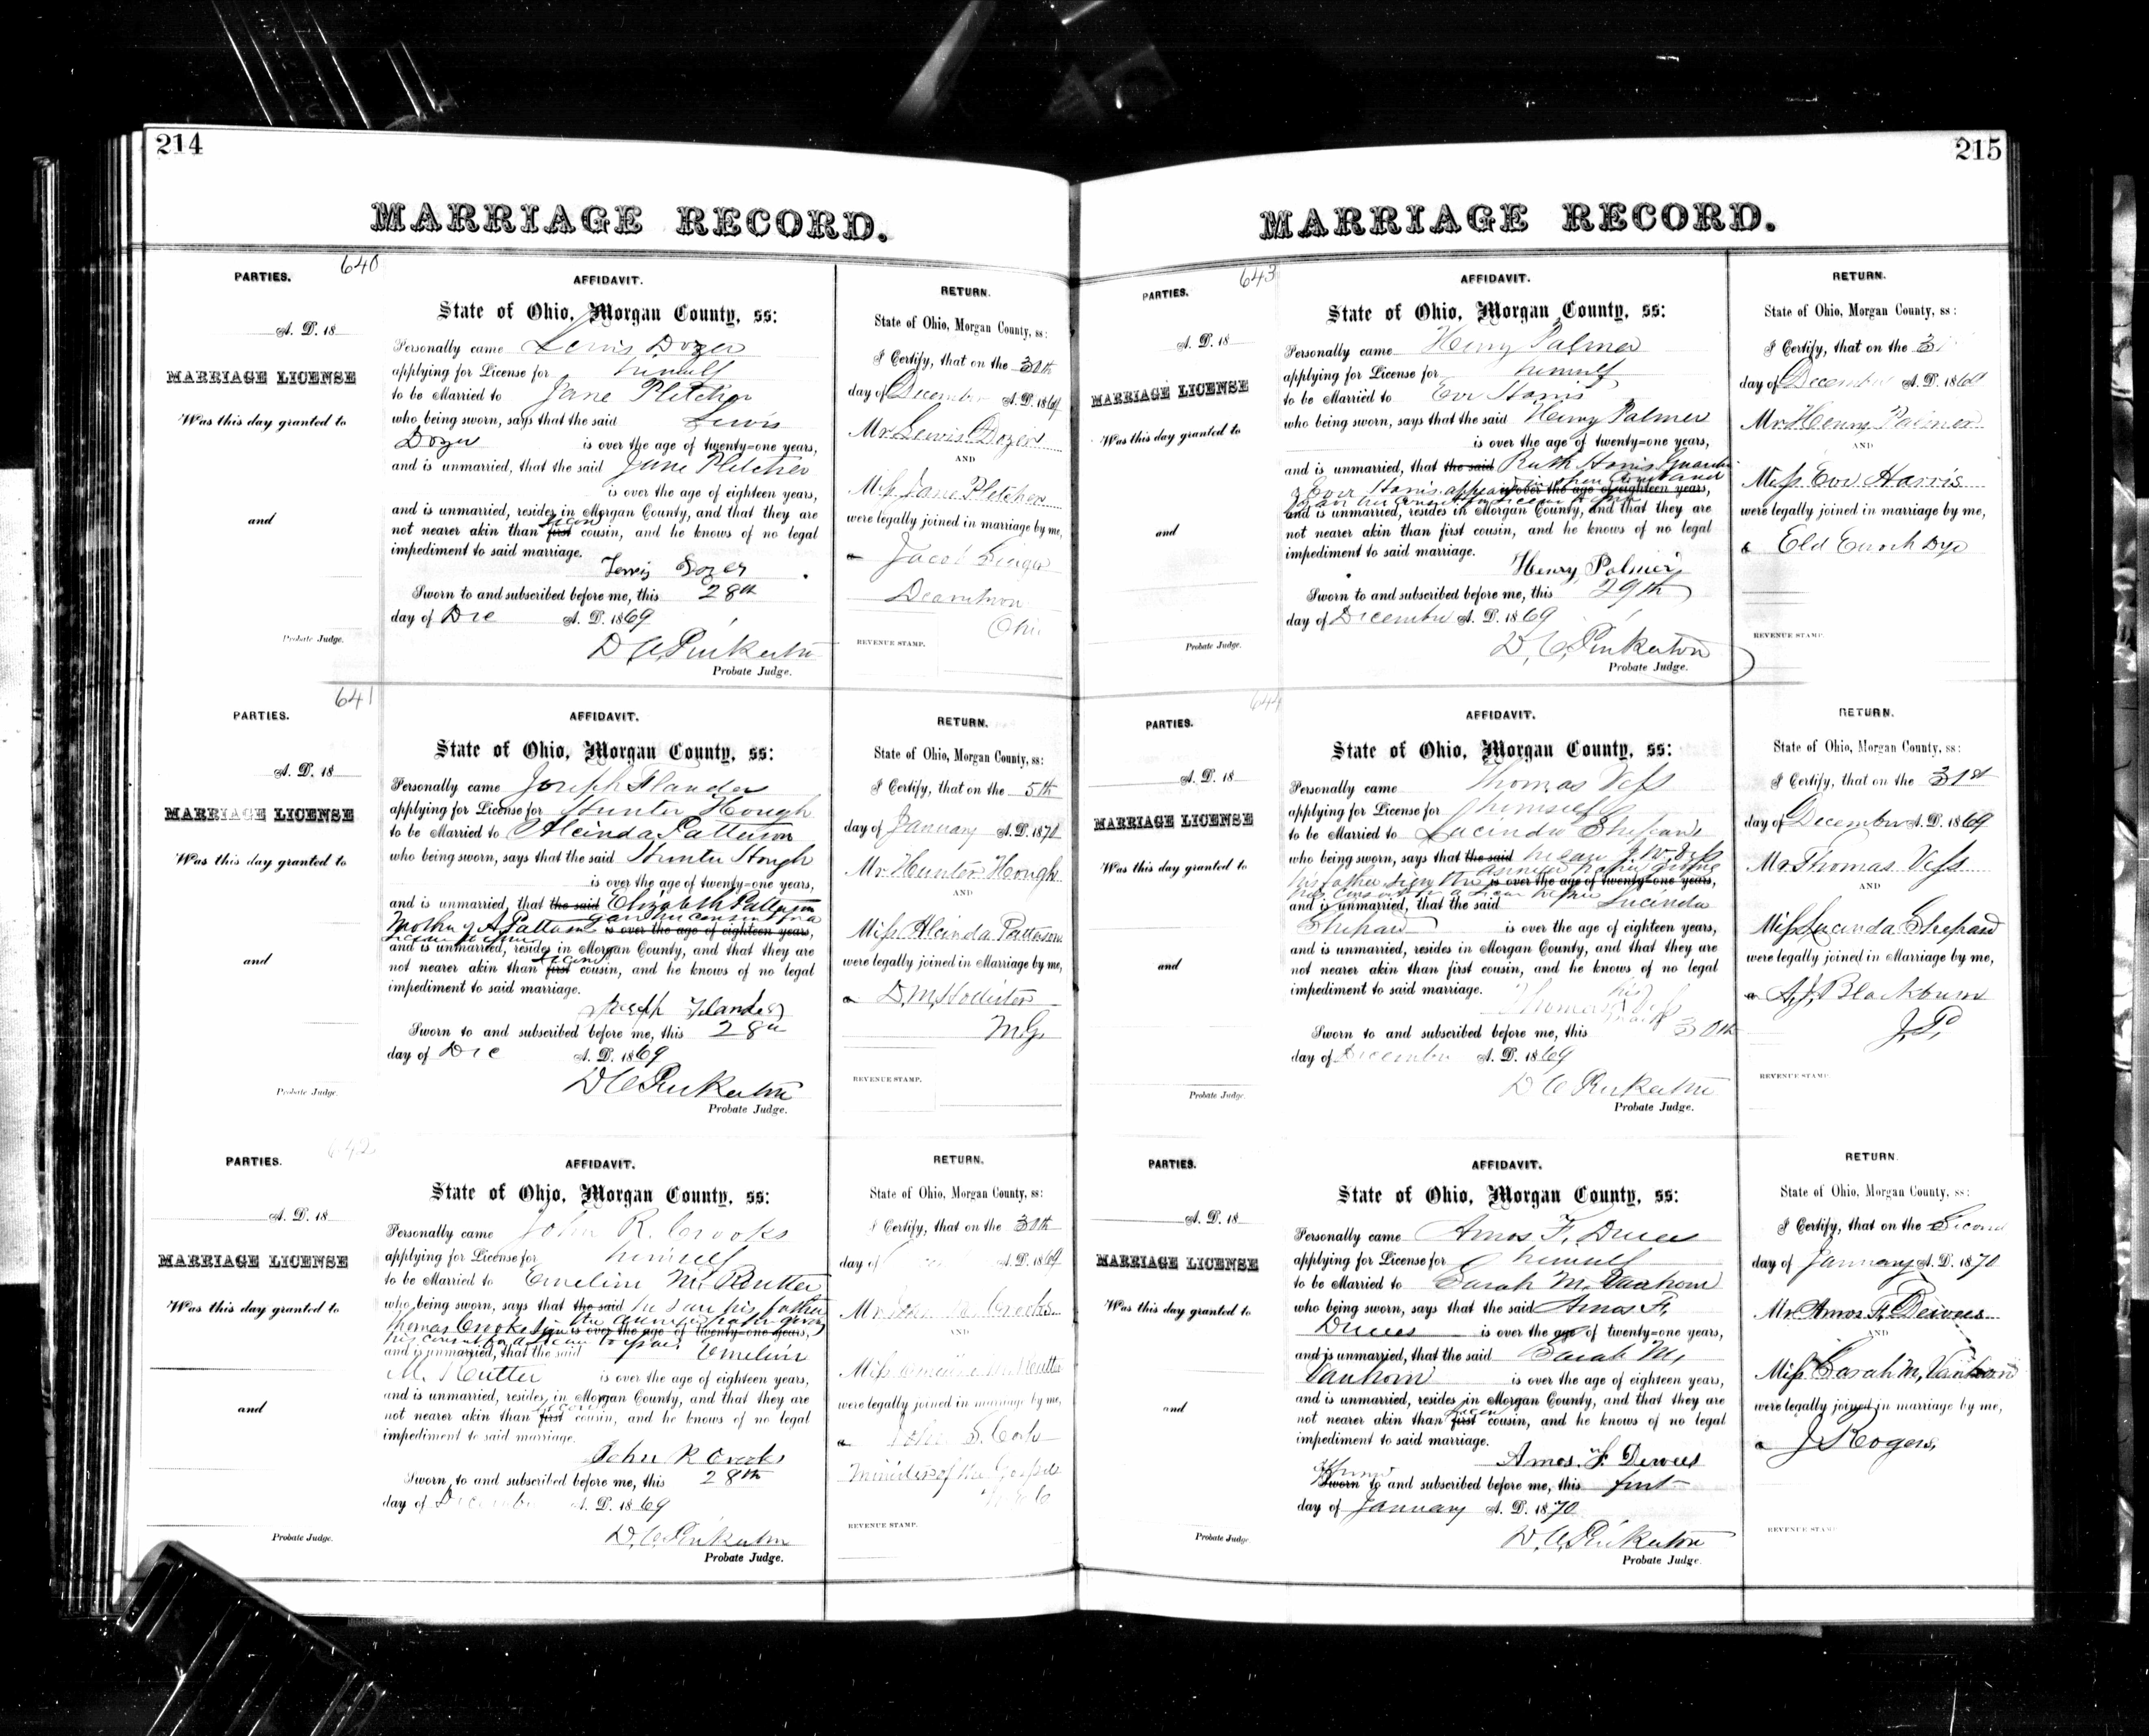 214
MARRIAGE RECORD.
640
PARTIES.
A. D. 18
MARRIAGE LICENSE
Was this day granted to
and
Probate Judge.
AFFIDAVIT.
State of Ohio, Morgan County, ss:
Personally came Lewis Dozer
applying for License for himself
to be Married to Jane Pletcher
who being sworn, says that the said Lewis
Dozer is over the age of twenty=one years,
and is unmarried, that the said Jane Pletcher
is over the age of eighteen years,
and is unmarried, resides in Morgan County, and that they are
not nearer akin than first cousin, and he knows of no legal
impediment to said marriage.
Lewis Dozer
Sworn to and subscribed before me, this 28th
day of Dec A. D. 1869
D C Pinkerton
Probate Judge.
RETURN.
State of Ohio, Morgan County, ss:
I Certify, that on the 30th
day of December A. D. 1869
Mr. Lewis Dozer
AND
Miss Jane Pletcher
were legally joined in marriage by me,
a Jacob
Ohio
REVENUE STAMP.
641
PARTIES.
A. D. 18
MARRIAGE LICENSE
Was this day granted to
and
Probate Judge.
AFFIDAVIT.
State of Ohio, Morgan County, ss:
Personally came Joseph Flander
applying for License for Hunter Hough
to be Married to Alcinda Patterson
who being sworn, says that the said Hunter Hough
is over the age of twenty=one years,
and is unmarried, that the said Elizabeth Patterson
Mother of A Patterson gave her consent for a
is over the age of eighteen years,
and is unmarried, resides in Morgan County, and that they are
not nearer akin than first cousin, and he knows of no legal
impediment to said marriage.
Joseph Flander
Sworn to and subscribed before me, this 28th
day of Dec A. D. 1869
D C Pinkerton
Probate Judge.
RETURN.
State of Ohio, Morgan County, ss:
I Certify, that on the 5th
day of January A. D. 1870
Mr. Hunter Hough
AND
Miss Alcinda Patterson
were legally joined in Marriage by me,
a D. M. Hollister
M.G.
REVENUE STAMP.
642
PARTIES.
A. D. 18
MARRIAGE LICENSE
Was this day granted to
and
Probate Judge.
AFFIDAVIT.
State of Ohio, Morgan County, ss:
Personally came John R. Crooks
applying for License for himself
to be Married to Emeline M. Rutter
who being sworn, says that the said he saw his father
Thomas Crooks sign the annexed paper giving
is over the age of twenty=one years,
his consent for a license to issue.
and is unmarried, that the said Emeline
M. Rutter is over the age of eighteen years,
and is unmarried, resides in Morgan County, and that they are
not nearer akin than first cousin, and he knows of no legal
impediment to said marriage.
John R Crooks
Sworn to and subscribed before me, this 28th
day of December A. D. 1869
D. C. Pinkerton
Probate Judge.
RETURN.
State of Ohio, Morgan County, ss:
I Certify, that on the 30th
day of A. D. 1869
Mr. John R. Crooks
AND
Miss Emeline M Rutter
were legally joined in marriage by me,
a John S.
Minister of the Gospel
REVENUE STAMP.
215
MARRIAGE RECORD.
643
PARTIES.
A. D. 18
MARRIAGE LICENSE
Was this day granted to
and
Probate Judge.
AFFIDAVIT.
State of Ohio, Morgan County, ss:
Personally came Henry Palmer
applying for License for himself
to be Married to Evr Harris
who being sworn, says that the said Henry Palmer
is over the age of twenty=one years,
and is unmarried, that the said Ruth Harris Guardian
of Evr Harris appeared in open Court and
is over the age of eighteen years,
and is unmarried, resides in Morgan County, and that they are
not nearer akin than first cousin, and he knows of no legal
impediment to said marriage.
Henry Palmer
Sworn to and subscribed before me, this 29th
day of December A. D. 1869
D. C. Pinkerton
Probate Judge.
RETURN.
State of Ohio, Morgan County, ss:
I Certify, that on the 31
day of December A. D. 1869
Mr. Henry Palmer
AND
Miss Evr Harris
were legally joined in marriage by me,
a Eld Enoch Dye
REVENUE STAMP.
644
PARTIES.
A. D. 18
MARRIAGE LICENSE
Was this day granted to
and
Probate Judge.
AFFIDAVIT.
State of Ohio, Morgan County, ss:
Personally came Thomas Vess
applying for License for himself
to be Married to Lucinda Shepard
who being sworn, says that the said he saw J. W. Vess
his father sign the annexed paper giving
is over the age of twenty=one years,
and is unmarried, that the said Lucinda
Shepard is over the age of eighteen years,
and is unmarried, resides in Morgan County, and that they are
not nearer akin than first cousin, and he knows of no legal
impediment to said marriage.
Thomas his X mark Vess
Sworn to and subscribed before me, this 30th
day of December A. D. 1869
D C Pinkerton
Probate Judge.
RETURN.
State of Ohio, Morgan County, ss:
I Certify, that on the 31st
day of December A. D. 1869
Mr. Thomas Vess
AND
Miss Lucinda Shepard
were legally joined in marriage by me,
a A. J. Blackburn
J.P.
REVENUE STAMP.
PARTIES.
A. D. 18
MARRIAGE LICENSE
Was this day granted to
and
Probate Judge
AFFIDAVIT.
State of Ohio, Morgan County, ss:
Personally came Amos F. Dewees
applying for License for himself
to be Married to Sarah M. Vanhorn
who being sworn, says that the said Amos F.
Dewees is over the age of twenty=one years,
and is unmarried, that the said Sarah M.
Vanhorn is over the age of eighteen years,
and is unmarried, resides in Morgan County, and that they are
not nearer akin than first cousin, and he knows of no legal
impediment to said marriage.
Amos. F Dewees
Affirmed
Sworn to and subscribed before me, this first
day of January A. D. 1870
D. C. Pinkerton
Probate Judge.
RETURN.
State of Ohio, Morgan County, ss:
I Certify, that on the Second
day of January A. D. 1870
Mr. Amos F. Dewees
AND
Miss Sarah M. Vanhorn
were legally joined in marriage by me,
a J Rogers,
REVENUE STAMP